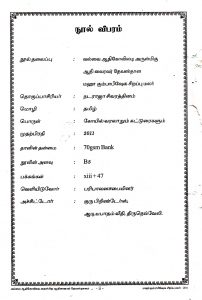 நூல் விபரம்
நூல்தலைப்பு : வல்வை ஆதிகோவிலடி அருள்மிகு
ஆதி வைரவர் தேவஸ்தான
மஹா கும்பாபிஷேக சிறப்பு மலர்
தொகுப்பாசிரியர் : நடராஜா சிவரத்தினம்
மொழி : தமிழ்
பொருள் : கோயில் வரலாறும் கட்டுரைகளும்
முதற்பிரதி : 2011
தாளின் தன்மை : 70gsm Bank
நூலின் அளவு : B5
பக்கங்கள் : xiii + 47
வெளியிடுவோர் : பரிபாலன சபையினர்
அச்சிட்டோர் : குரு பிறிண்டேர்ஸ்,
ஆடியபாதம் வீதி, திருநெல்வேலி.